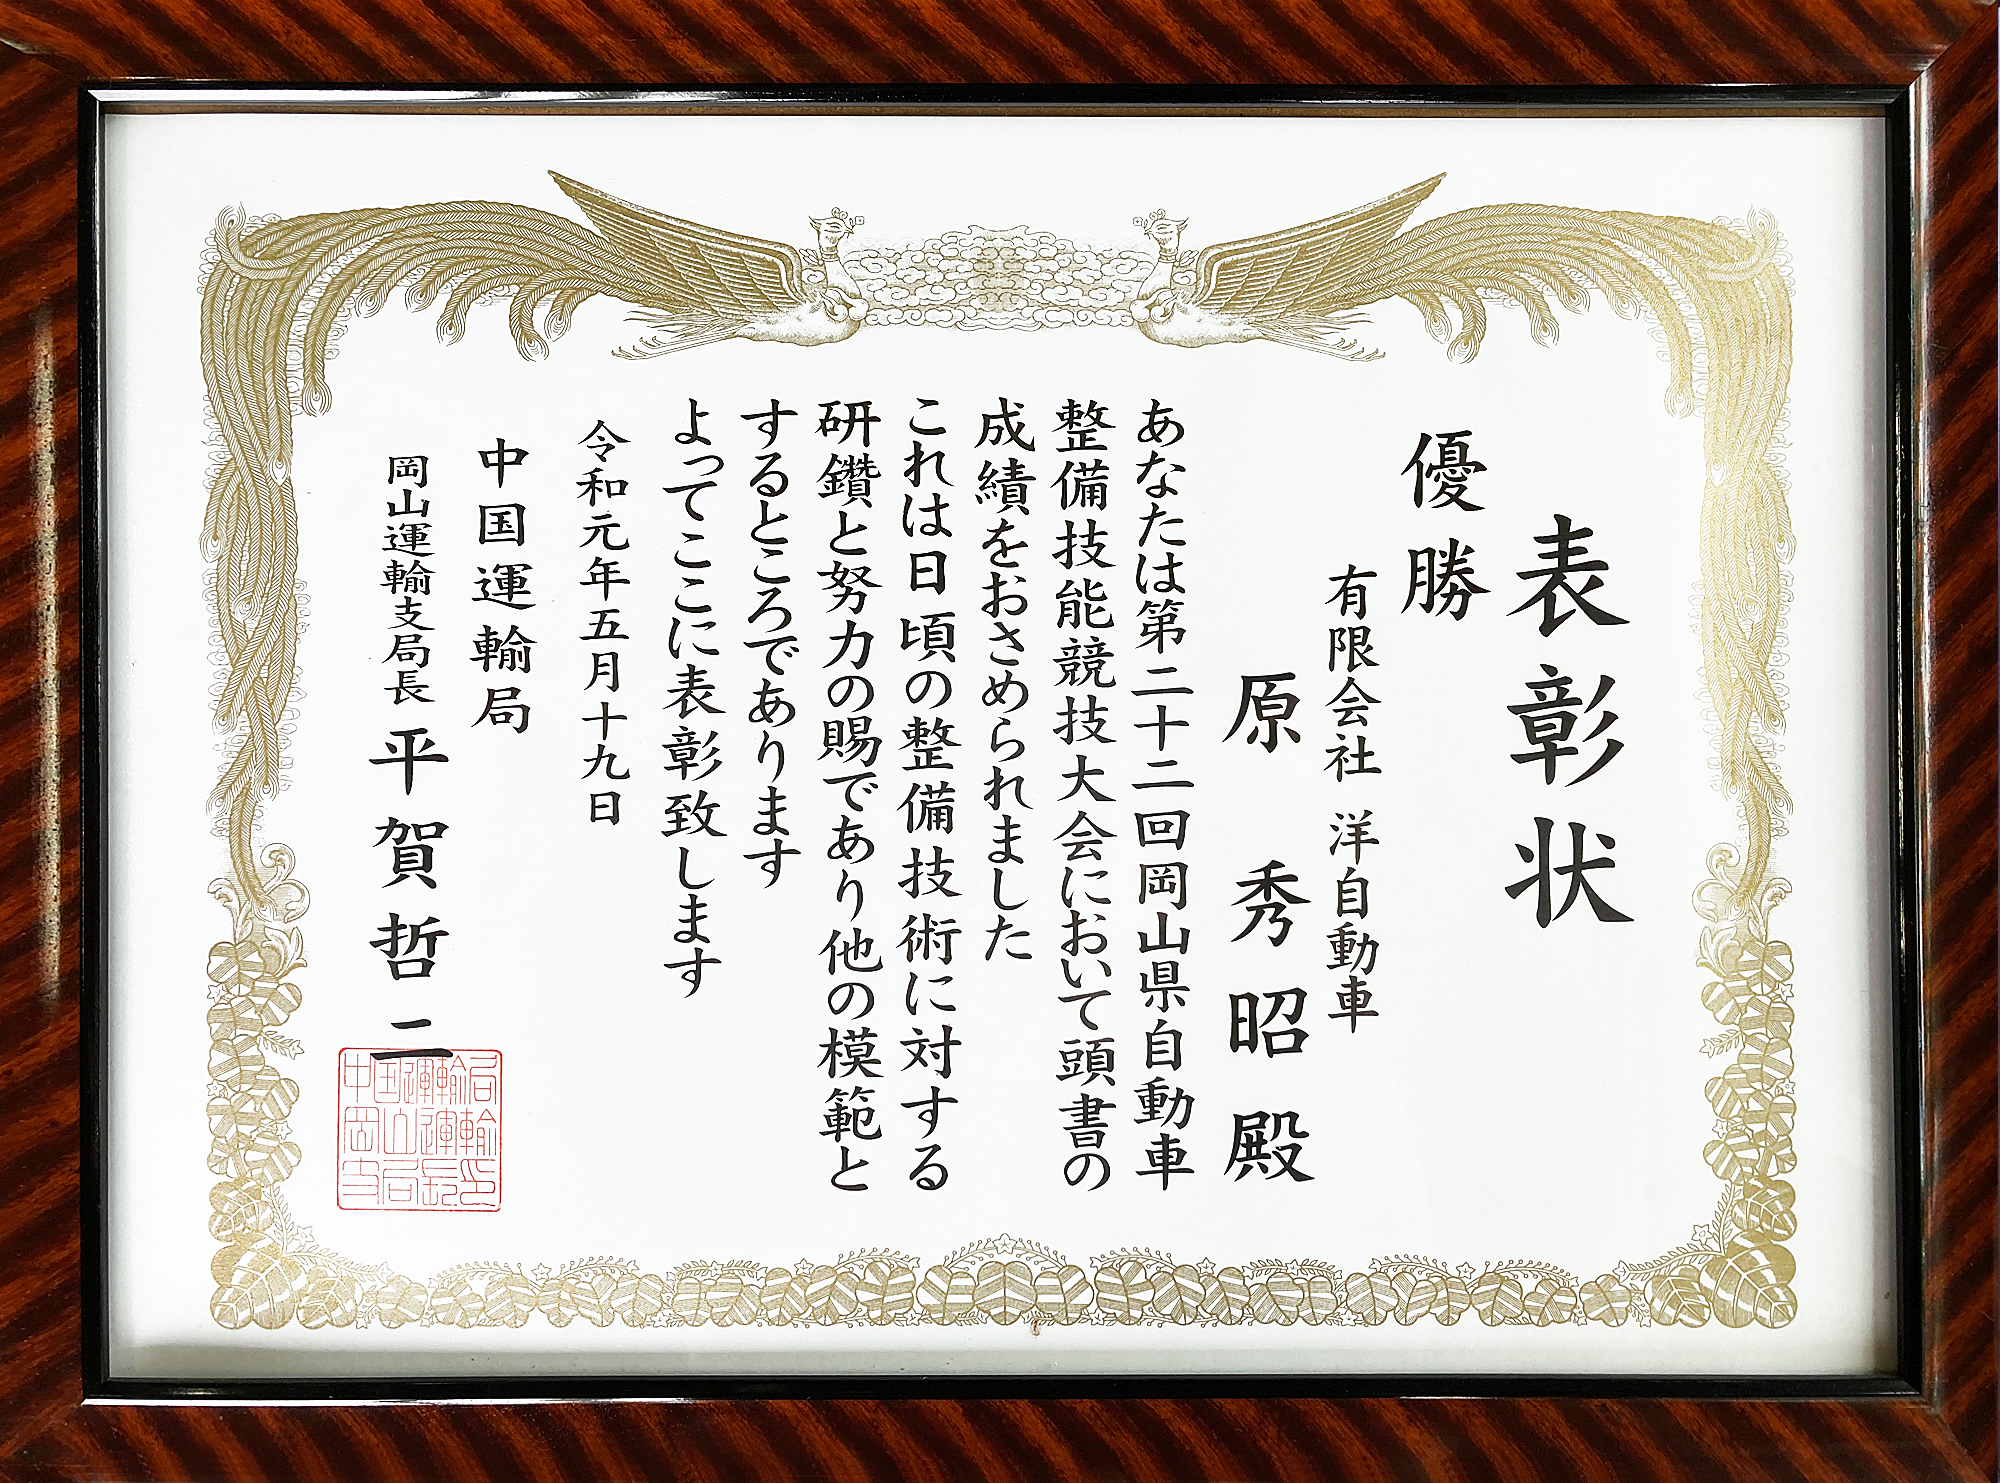 表彰状
優勝
有限会社 洋自動車
原 秀昭 殿
あなたは第二十二回岡山県自動車
整備技能競技大会において頭書の
成績をおさめられました
これは日頃の整備技術に対する
研鑽と努力の賜であり他の模範と
するところであります
よってここに表彰致します
令和元年五月十九日
中国運輸局
岡山運輸支局長 平賀哲二